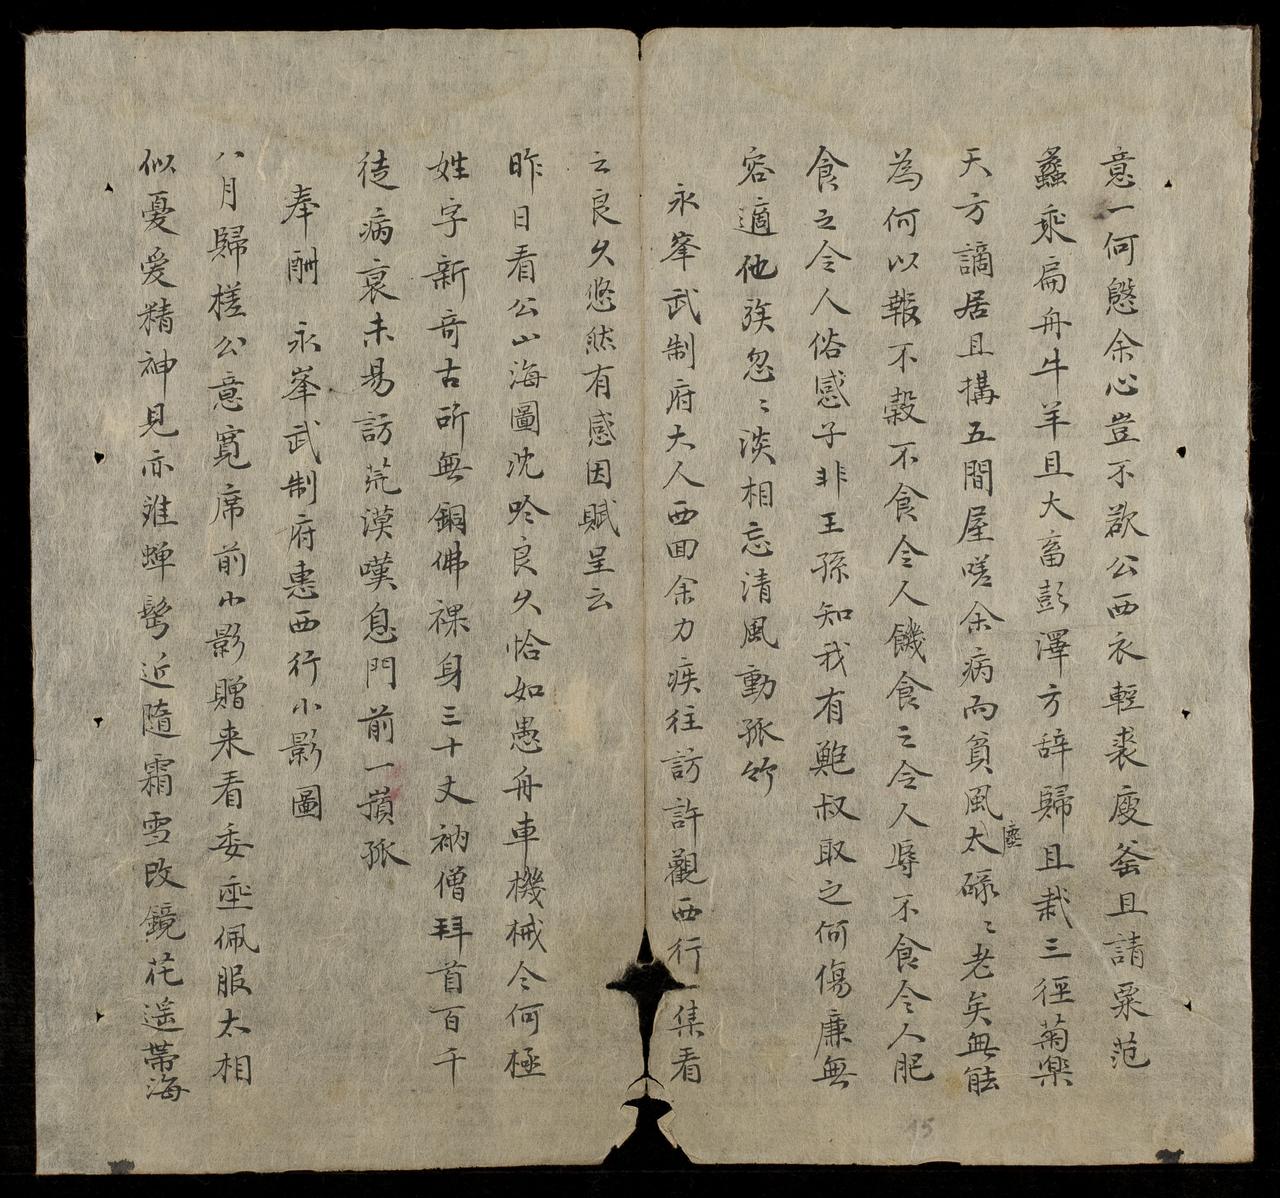 意一何慇余心豈不欲公西衣輕裘廋釜且請粟范
蠡乘扁舟牛羊且大畜彭澤方辞歸且栽三徑菊樂
天方謫居且搆五間屋嗟余病而貧風塵太碌〻老矣無能
為何以報不穀不食令人饑食之令人辱不食令人肥
食之令人俗感子非王孫知我有鮑叔取之何傷廉無
容適他族忽〻淡相忘清風動孤竹
永峯武制府大人西回余力疾往訪許觀西行一集看
云良久悠然有感因賦呈云
昨日看公山海圖沈吟良久恰如愚舟車機械今何極
姓字新奇古所無銅佛裸身三十丈衲僧拜首百千
徒病衰未易訪荒漠嘆息門前一嶺孤
奉酬 永峯武制府惠西行小影圖
八月歸槎公意寬席前小影贈来看委垂佩服太相
似憂爱精神見亦難蝉鬓近隨霜雪改鏡花遥帶海